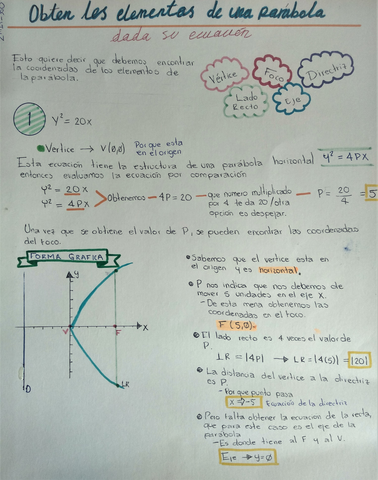 Obten los elementos de una parábola
dada su ecuación
Esto quiere decir que debemos encontrar
la coordenadas de los elementos de
la parábola.
Vértice
Foco
Directriz
Lado
Recto
Eje
1
Y² = 20x
Vértice → V(0,0) Porque esta
en el origen
Esta ecuación tiene la estructura de una parábola horizontal y² = 4PX
entonces evaluamos la ecuación por comparación
Y² = 20x
Y² = 4Px
Obtenemos - 4P=20 - que numero multiplicado
por 4 te da 20/otra
opción es despejar.
P= 20/4 = 5
Una vez que se obtiene el valor de P, se pueden encontrar las coordenadas
del foco.
FORMA GRAFICA
Y
X
V
F
D
LR
Sabemos que el vertice esta en
el origen y es horizontal.
P nos indica que nos debemos de
mover 5 unidades en el eje X.
- De esta manera obtenemos las
coordenadas en el foco.
F(5,0).
El lado recto es 4 veces el valor de
P.
LR = |4P| → LR = |4(5)| = |20|
La distancia del vertice a la directriz
es P.
- Por que punto pasa
x → -5 Ecuación de la directriz
Pero falta obtener la ecuacion de la recta,
que para este caso es el eje de la
parábola
- Es donde tiene al F y al V.
Eje → y=0